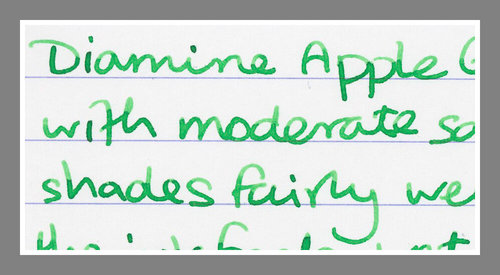 Diamine Apple G
with moderate sa
shades fairly we